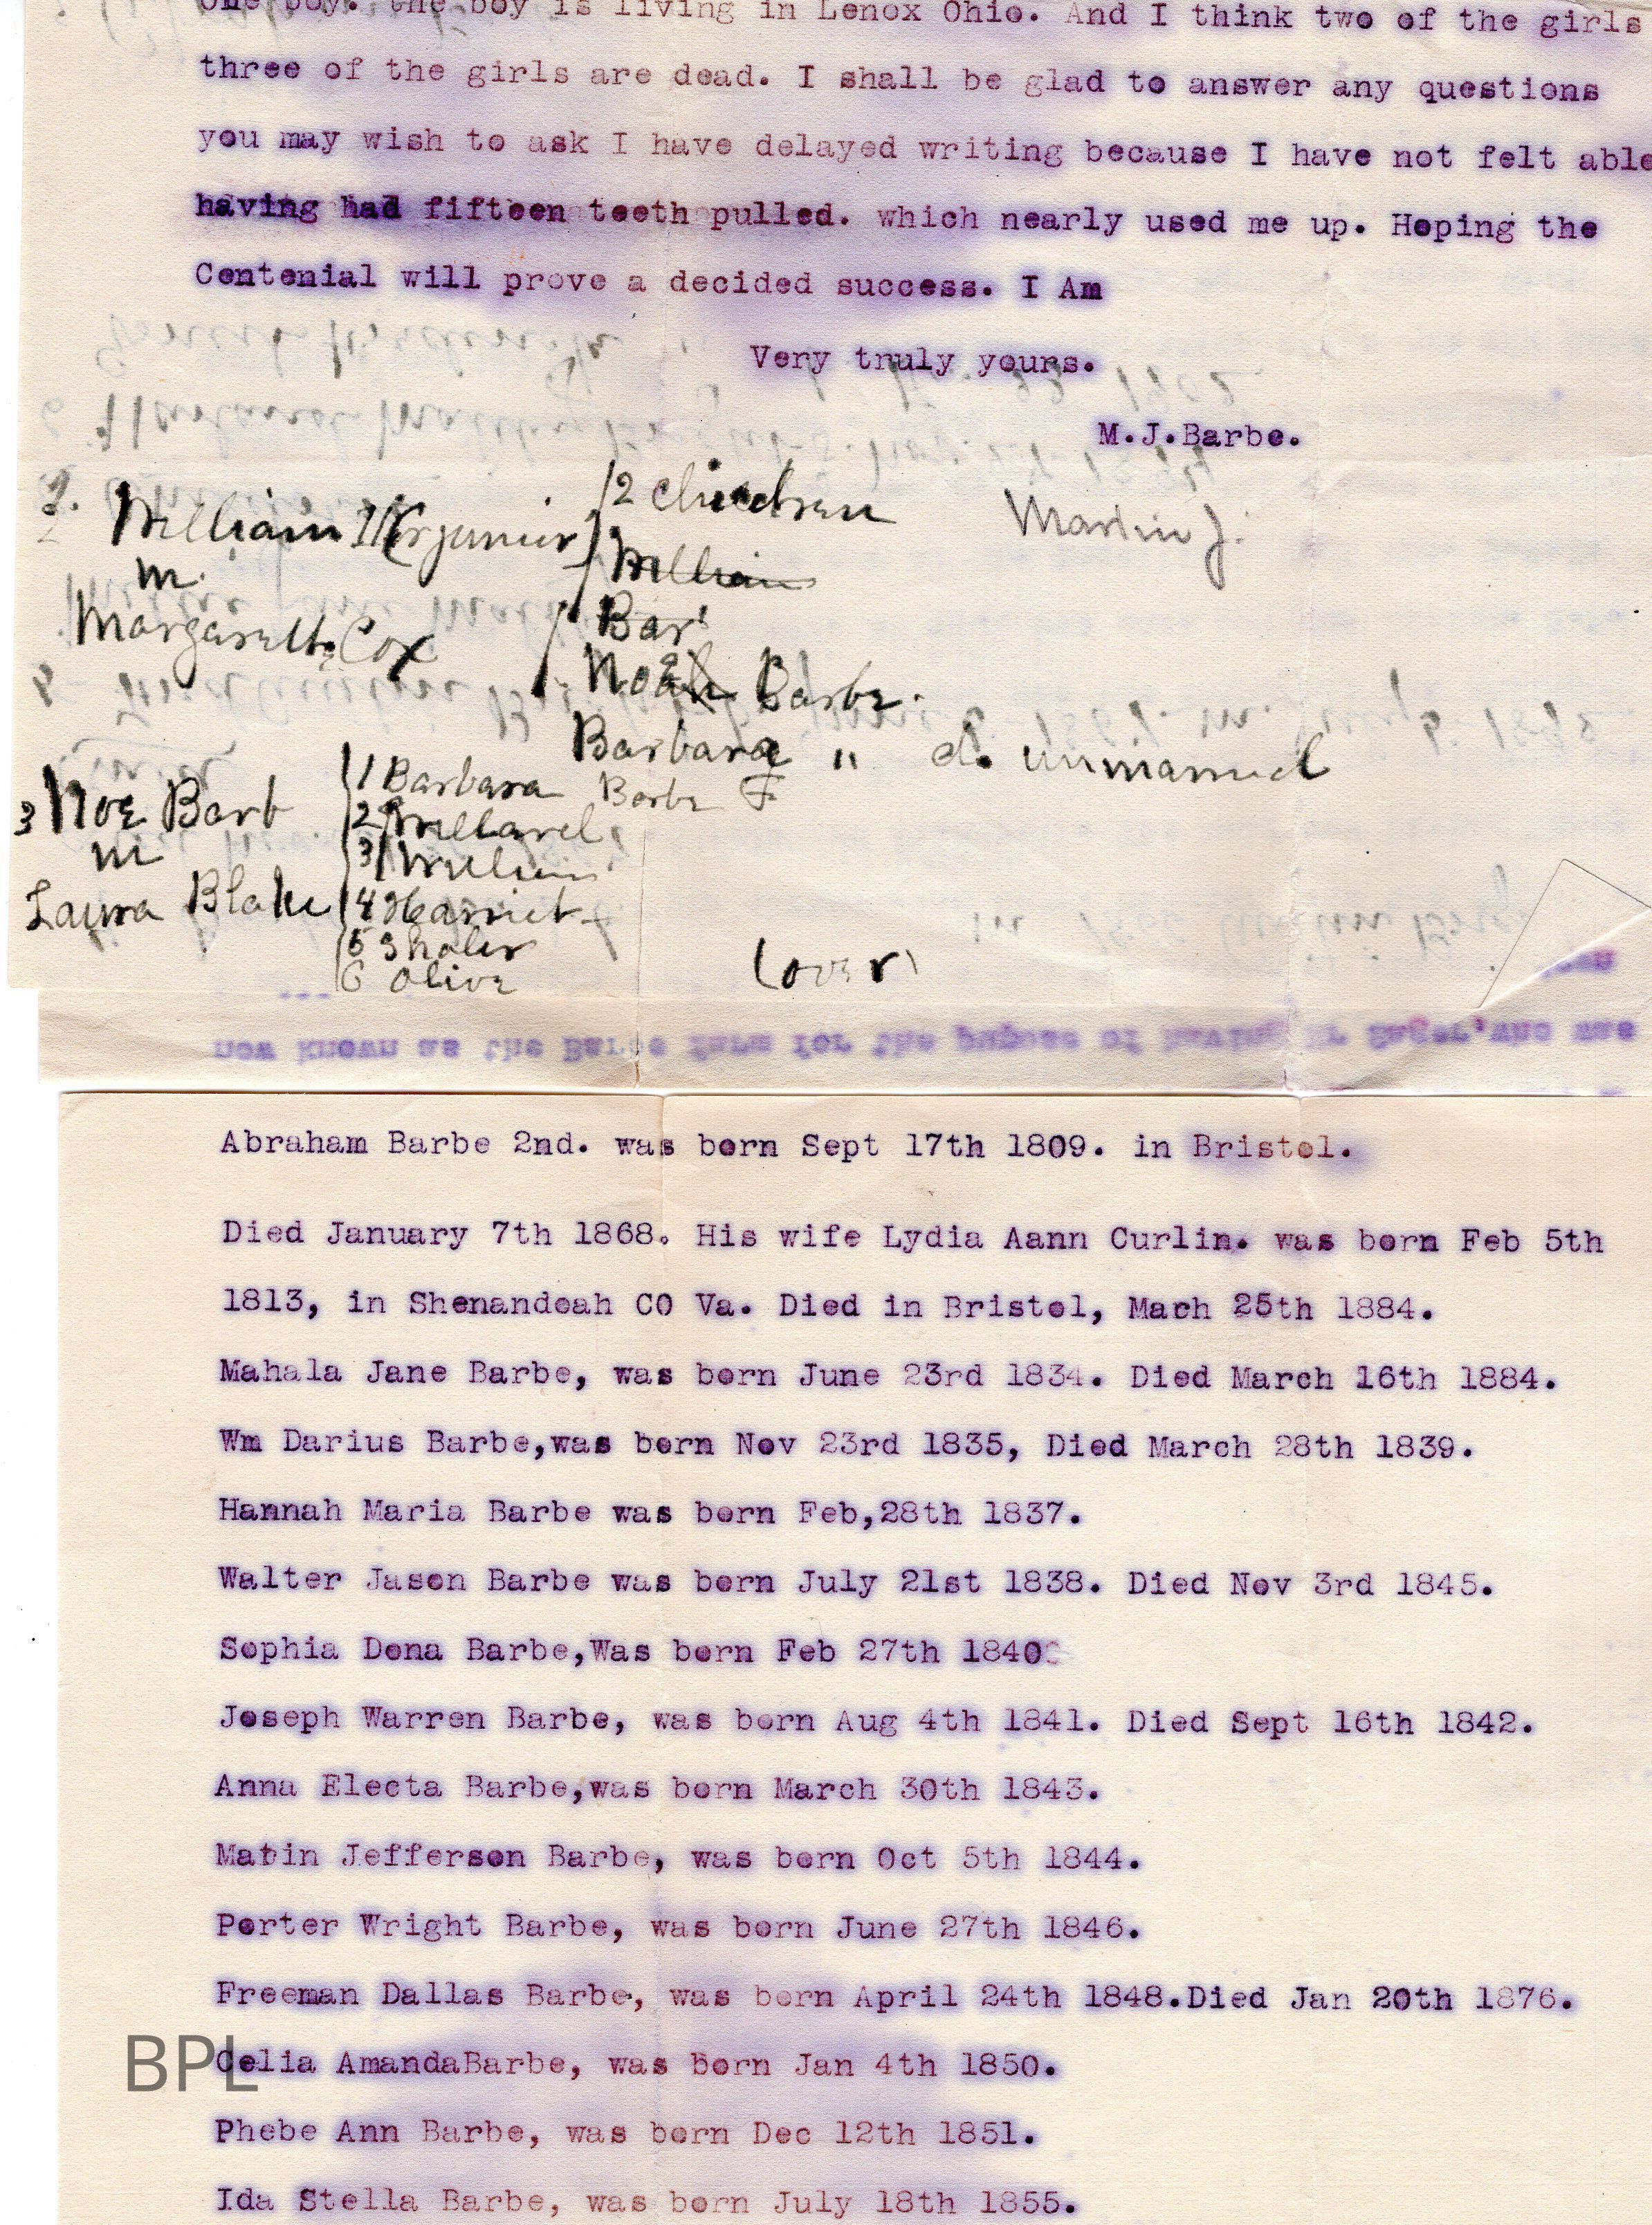 One boy. the boy is living in Lenox Ohio. And I think two of the girls
three of the girls are dead. I shall be glad to answer any questions
you may wish to ask I have delayed writing because I have not felt able
having had fifteen teeth pulled. which nearly used me up. Hoping the
Centenial will prove a decided success. I Am
Very truly yours.
M.J.Barbe.
Martin J.
William
m.
Margarett Cox
2 children
William
Bar
Noah Barbe.
Barbara " d. unmarried
3 Noe Barb
m
Laura Blake
1 Barbara Barbe
2 Willard
3 William
4 Harriet
5 Shaler
6 Olive
(over)
now known as the Barbe farm for the pupose of having Mr Hager, who was
Abraham Barbe 2nd. was born Sept 17th 1809. in Bristol.
Died January 7th 1868. His wife Lydia Aann Curlin. was born Feb 5th
1813, in Shenandoah CO Va. Died in Bristol, Mach 25th 1884.
Mahala Jane Barbe, was born June 23rd 1834. Died March 16th 1884.
Wm Darius Barbe,was born Nov 23rd 1835, Died March 28th 1839.
Hannah Maria Barbe was born Feb,28th 1837.
Walter Jason Barbe was born July 21st 1838. Died Nov 3rd 1845.
Sophia Dona Barbe,Was born Feb 27th 1840
Joseph Warren Barbe, was born Aug 4th 1841. Died Sept 16th 1842.
Anna Electa Barbe,was born March 30th 1843.
Matin Jefferson Barbe, was born Oct 5th 1844.
Porter Wright Barbe, was born June 27th 1846.
Freeman Dallas Barbe, was born April 24th 1848.Died Jan 20th 1876.
Celia AmandaBarbe, was born Jan 4th 1850.
Phebe Ann Barbe, was born Dec 12th 1851.
Ida Stella Barbe, was born July 18th 1855.
BPL